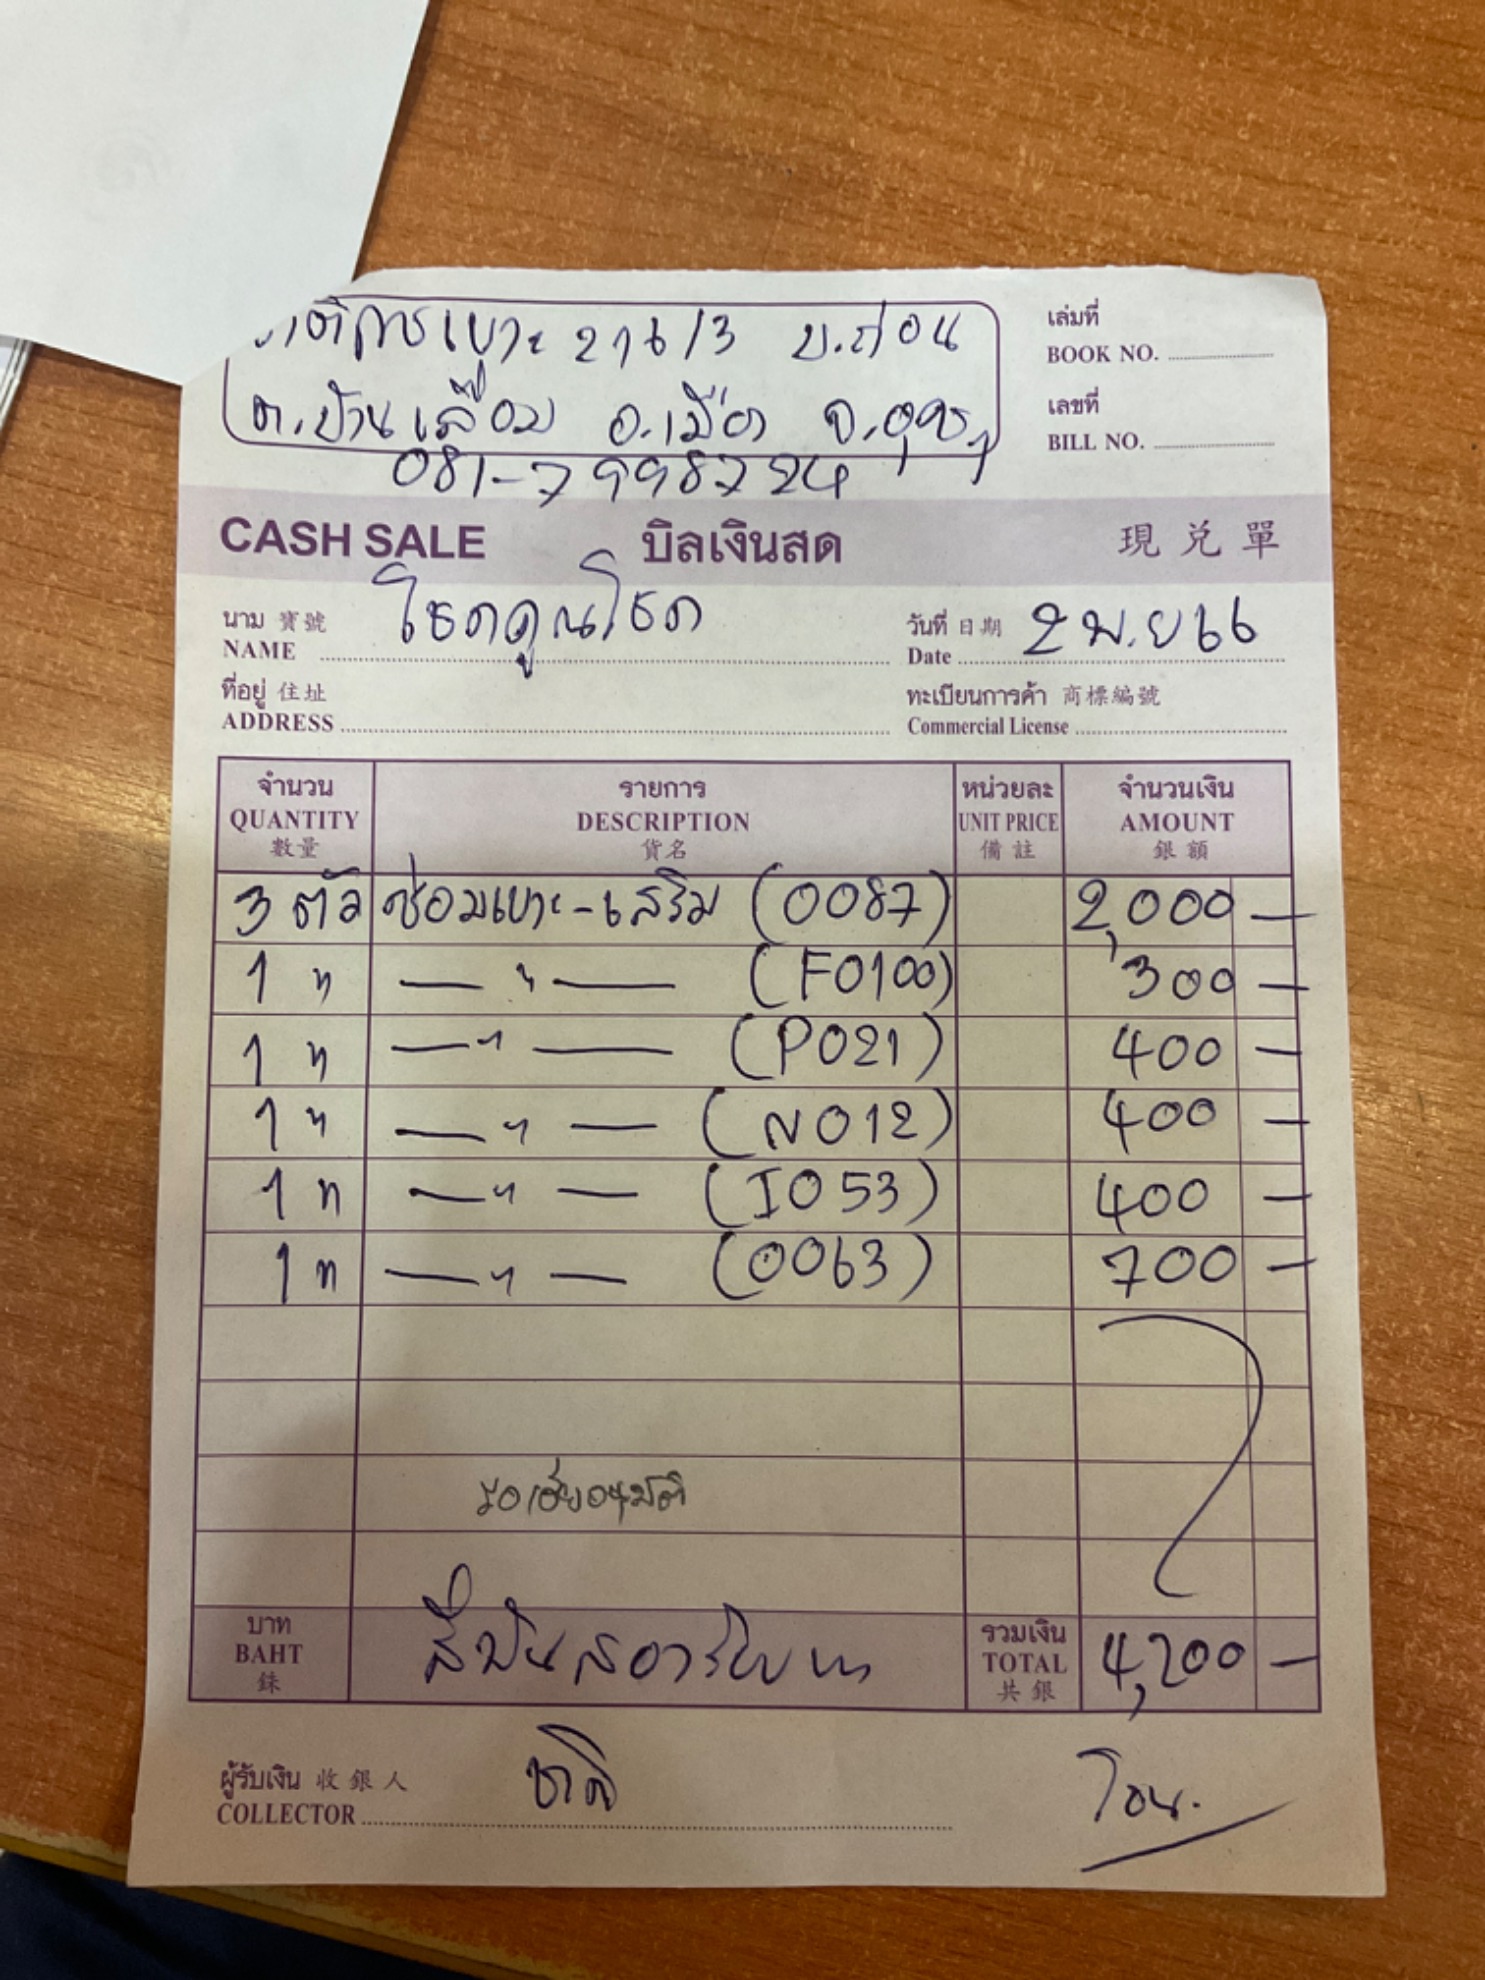 ชาติการเบาะ 216/3 บ.ถ่อน
ต.บ้านเลื่อม อ.เมือง จ.อุดร
081-7998724
เล่มที่
BOOK NO.
เลขที่
BILL NO.
CASH SALE บิลเงินสด 現兌單
นาม 寶號
NAME โชคคูณโชค
วันที่ 日期
Date 2 พ.ย 66
ที่อยู่ 住址
ADDRESS
ทะเบียนการค้า 商標編號
Commercial License
จำนวน รายการ หน่วยละ จำนวนเงิน
QUANTITY DESCRIPTION UNIT PRICE AMOUNT
數量 貨名 備註 銀額
3 ตัว ซ่อมเบาะ-เสริม (0087) 2,000 —
1 " — " — (F0100) 300 —
1 " — " — (P021) 400 —
1 " — " — (N012) 400 —
1 " — " — (I053) 400 —
1 " — " — (0063) 700 —
รอเฮียอนุมัติ
บาท รวมเงิน
BAHT สี่พันสองร้อยบาท TOTAL 4,200 —
銖 共銀
ผู้รับเงิน 收銀人
COLLECTOR ชาติ
โอน.